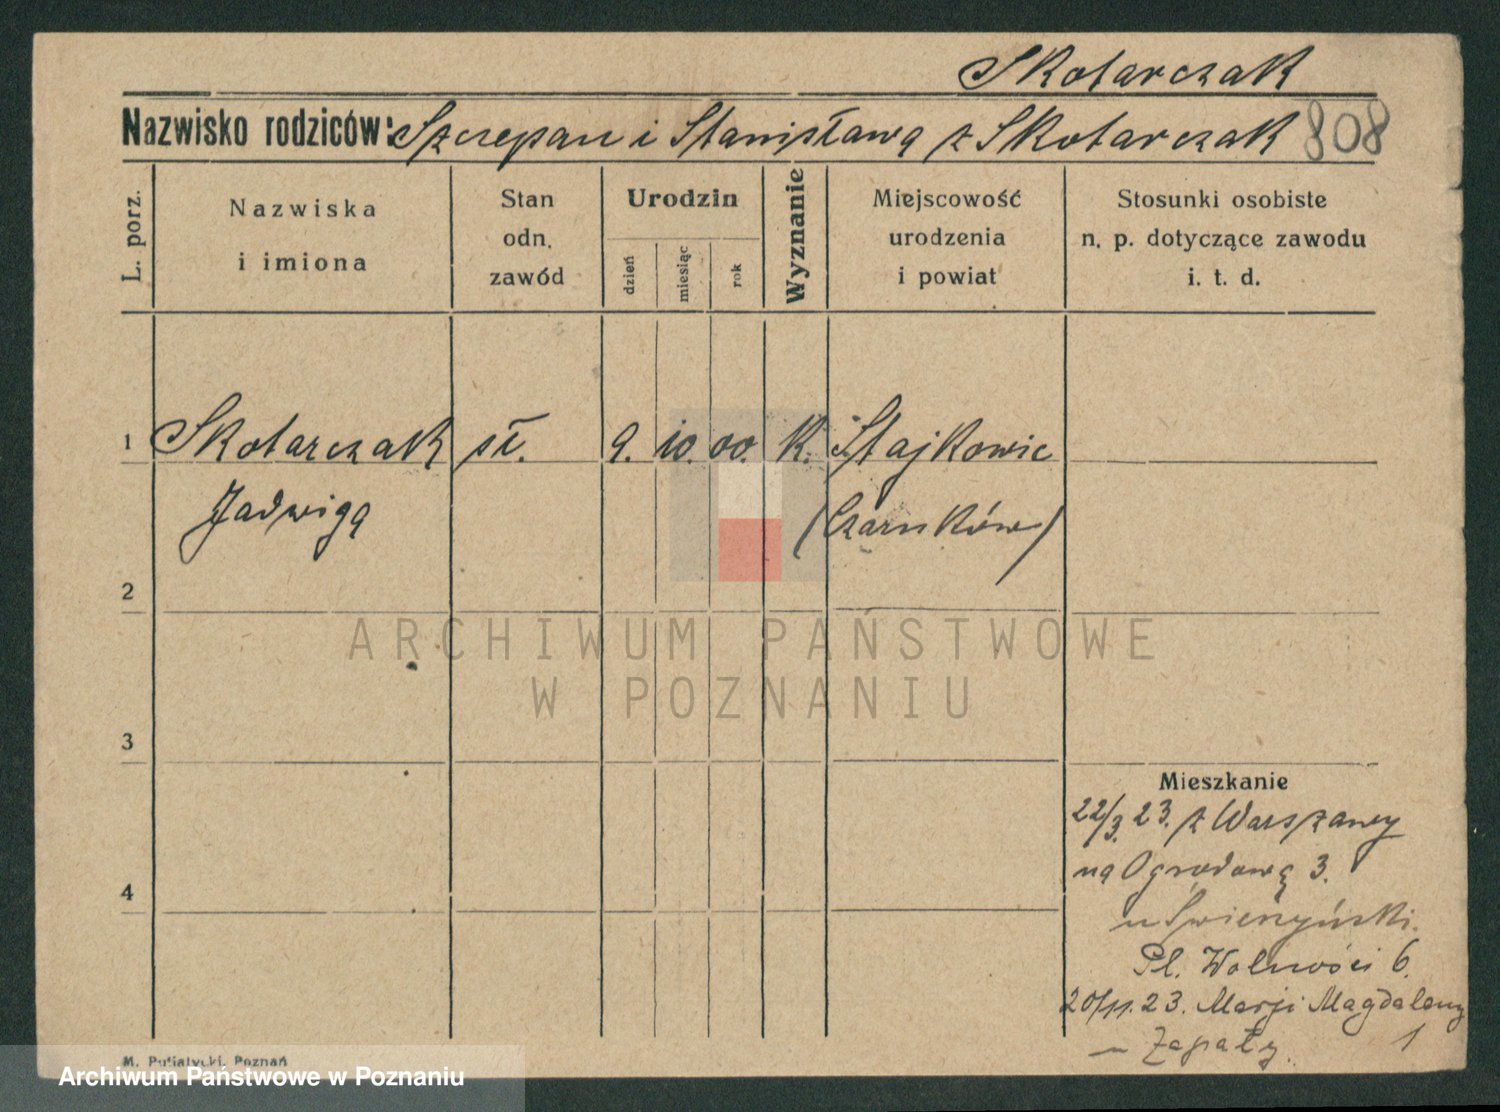 Skotarczak
Nazwisko rodziców: Szczepan i Stanisława z Skotarczak 808
L. porz.
Nazwiska
i imiona
Stan
odn.
zawód
Urodzin
dzień
miesiąc
rok
Wyznanie
Miejscowość
urodzenia
i powiat
Stosunki osobiste
n. p. dotyczące zawodu
i. t. d.
1 Skotarczak sł. 9. 10. 00. K. Stajkowic
Jadwiga (Czarnków)
2
ARCHIWUM PAŃSTWOWE
W POZNANIU
3
Mieszkanie
22/3. 23. z Warszawy
na Ogrodową 3.
4
u
Pl. Wolności 6.
20/11. 23. Marji Magdaleny
1
u Zapały.
M. Putiatycki, Poznań
Archiwum Państwowe w Poznaniu